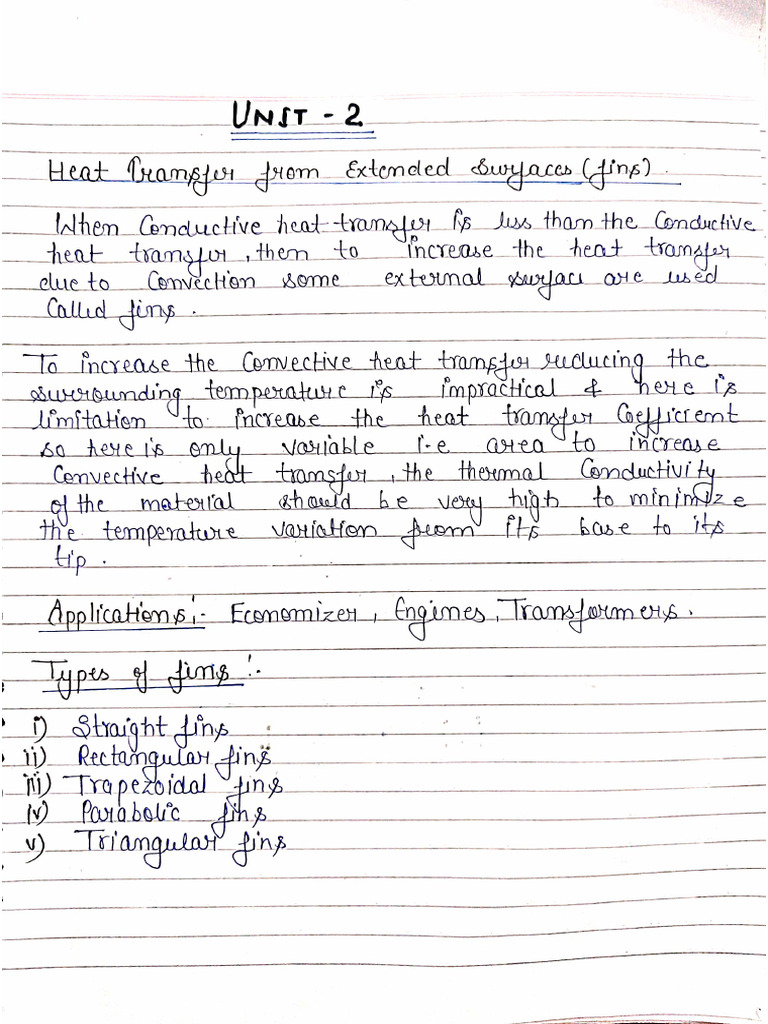 UNIT - 2
Heat Transfer from Extended Surfaces (fins).
When Conductive heat transfer is less than the Conductive
heat transfer, then to increase the heat transfer
due to Convection some external surfaci are used
Called fins.
To increase the Convective heat transfer reducing the
surrounding temperature is impractical & here is
limitation to increase the heat transfer Coefficient
so here is only variable i-e area to increase
Convective heat transfer, the thermal Conductivity
of the material should be very high to minimize
the temperature variation from its base to its
tip.
Applications:- Economizer, Engines, Transformers.
Types of fins:-
i) Straight fins
ii) Rectangular fins
iii) Trapezoidal fins
iv) Parabolic fins
v) Triangular fins